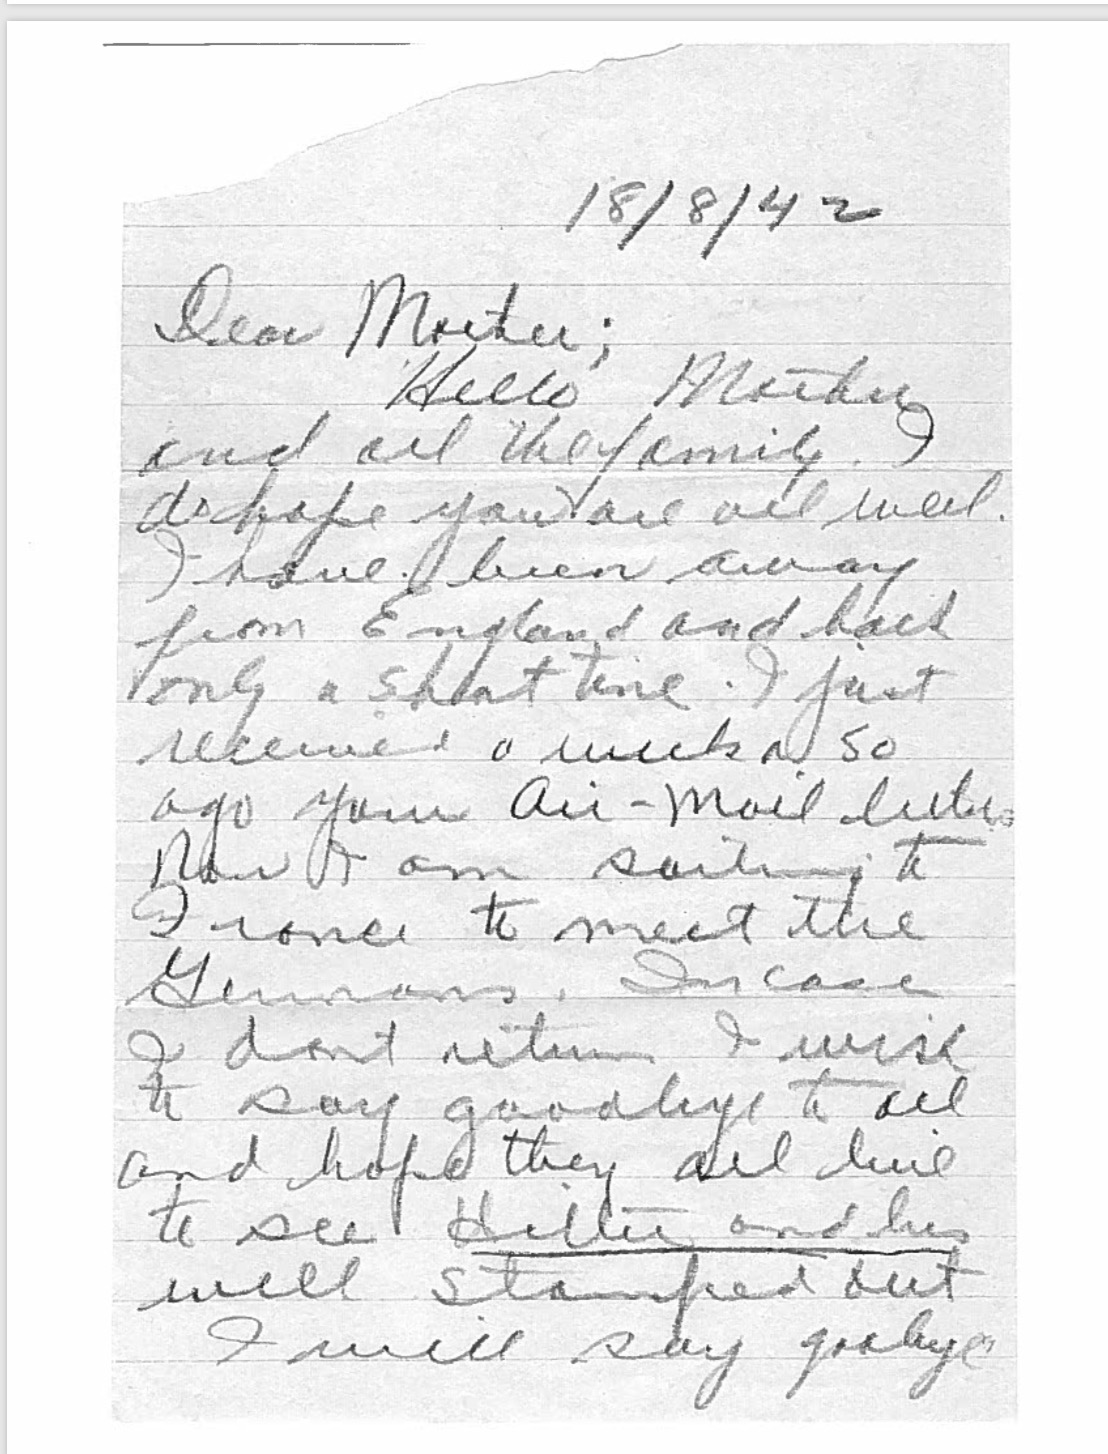 18/8/42
Dear Mother;
Hello Mother
and all the family. I
do hope you are all well.
I have been away
from England and back
only a short time. I just
received a week or so
ago your Air-Mail letters
Now I am sailing to
France to meet the
Germans. Incase
I dont return I wish
to say goodbye to all
and hope they all live
to see Hitler and his
well stamped out
I will say goodbye